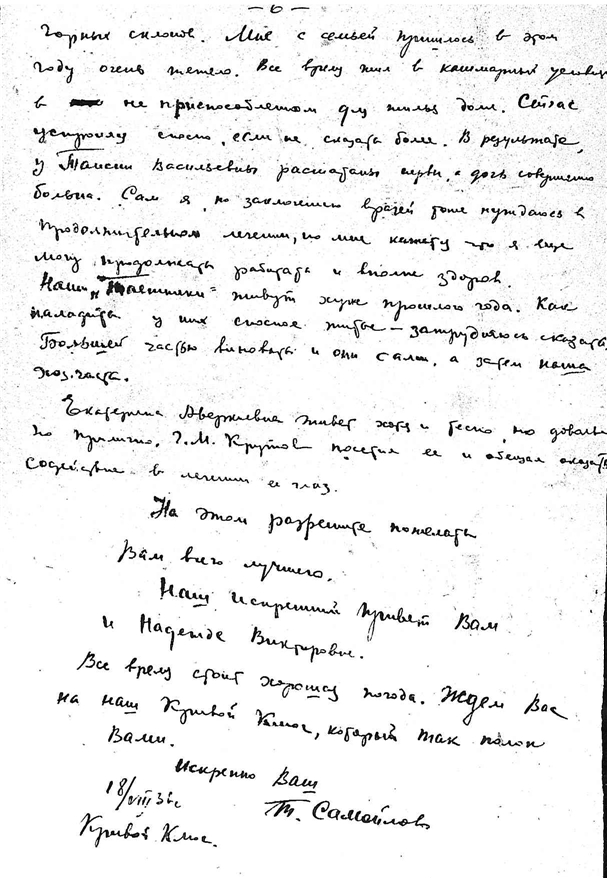 — 6 —
горных склонов. Мне с семьей пришлось в этом
году очень тяжело. Все время жил в кошмарных условиях
в не приспособленном для жилья доме. Сейчас
устроился сносно, если не сказать более. В результате,
у Таисии Васильевны расшатаны нервы, а дочь совершенно
больна. Сам я, по заключению врачей тоже нуждаюсь в
продолжительном лечении, но мне кажется что я еще
могу продолжать работать и вполне здоров.
Наши живут хуже прошлого года. Как
наладить у них сносное житье — затрудняюсь сказать
Большей частью виноваты и они сами, а затем наша
хоз. часть.
Екатерина Аверкиевна живет хотя и тесно, но доволь-
но прилично. Г.М. Крутов посетил ее и обещал оказать
содействие в лечении ее глаз.
На этом разрешите пожелать
Вам всего лучшего.
Наш искренний привет Вам
и Надежде Викторовне.
Все время стоит хорошая погода. Ждем Вас
на наш Кривой Ключ, который так полон
Вами.
Искренно Ваш
Т. Самойлов
18/VIII 36 г.
Кривой Ключ.